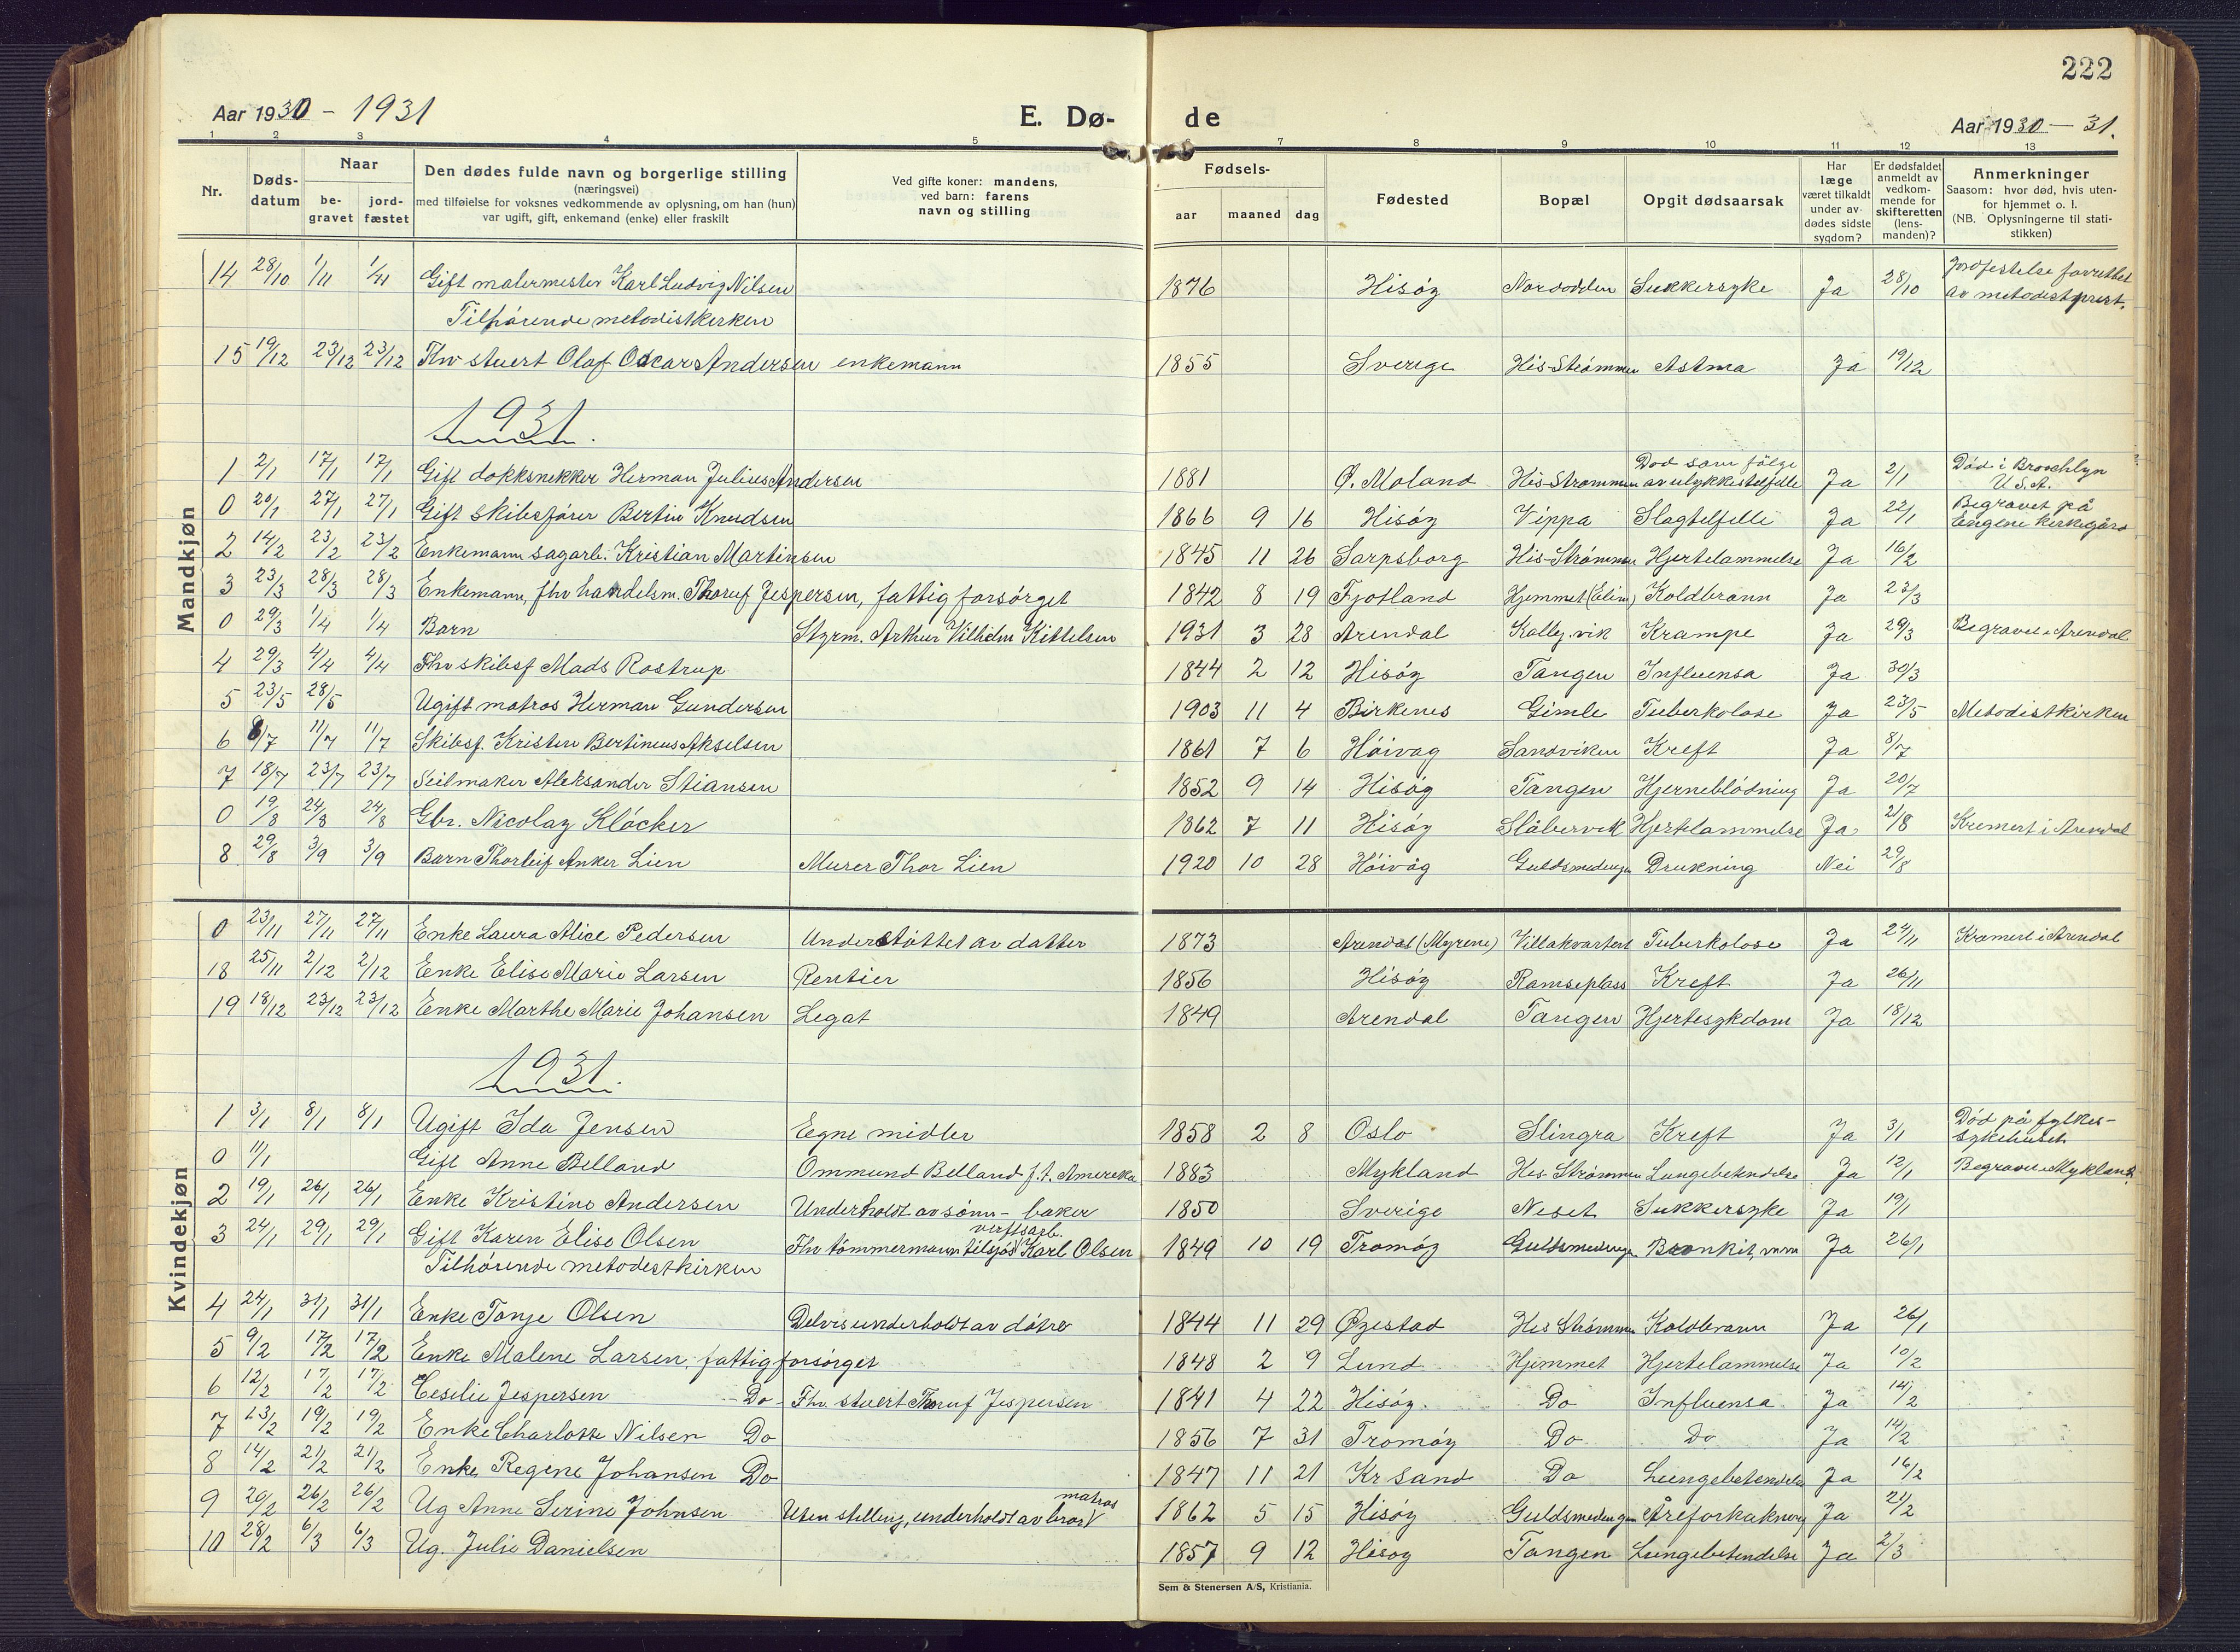 222
Aar 1930 - 1931
E. Dø-
de
Aar 1930 - 31.
1 2 3 4 5 6 7 8 9 10 11 12 13
Nr.
Døds-
datum
Naar
be-
gravet
jord-
fæstet
Den dødes fulde navn og borgerlige stilling
(næringsvei)
med tilføielse for voksnes vedkommende av oplysning, om han (hun)
var ugift, gift, enkemand (enke) eller fraskilt
Ved gifte koner: mandens,
ved barn: farens
navn og stilling
Fødsels-
aar maaned dag
Fødested
Bopæl
Opgit dødsaarsak
Har
læge
været tilkaldt
under av-
dødes sidste
sygdom?
Er dødsfaldet
anmeldt av
vedkom-
mende for
skifteretten
(lens-
manden)?
Anmerkninger
Saasom: hvor død, hvis uten-
for hjemmet o. l.
(NB. Oplysningerne til stati-
stikken)
Mandkjøn
14 28/10 1/11 1/11 Gift malermester Karl Ludvig Nilsen 1876 Hisøy Nordodden Sukkersyke Ja 28/10 Jordfestelse forrettet
av metodistprest.
Tilhørende metodistkerken
15 19/12 23/12 23/12 Fhv stuert Olaf Oscar Andersen enkemann 1855 Sverige His-Strømmen Astma Ja 19/12
1931.
1 2/1 17/1 17/1 Gift dokksnekker Herman Julius Andersen 1881 Ø. Moland His-Strømmen Død som følge
av ulykkestelfelle Ja 2/1 Død i Brooklyn
U.S.A.
0 20/1 27/1 27/1 Gift skibsfører Bertin Knudsen 1866 9 16 Hisøy Vippa Slagtelfelle Ja 22/1 Begravet på
Engene kirkegård
2 14/2 23/2 23/2 Enkemann sagarb. Kristian Martinsen 1845 11 26 Sarpsborg His-Strømmen Hjertelammelse Ja 16/2
3 23/3 28/3 28/3 Enkemann, fhv handelsm. Thoruf Jespersen, fattigforsørget 1842 8 19 Fjotland Hjemmet Koldbrann Ja 23/3
0 29/3 1/4 1/4 Barn Styrm. Arthur Vilhelm Kittelsen 1931 3 28 Arendal Kolbj.vik Krampe Ja 29/3 Begravet i Arendal
4 29/3 4/4 4/4 Fhv skibsf Mads Rostrup 1844 2 12 Hisøy Tangen Influensa Ja 30/3
5 23/5 28/5 Ugift matros Herman Gundersen 1903 11 4 Birkenes Gimle Tuberkolose Ja 23/5 Metodistkirken
6 8/7 11/7 11/7 Skibsf. Kristen Bertineus Akselsen 1861 7 6 Høivag Sandviken Kreft Ja 8/7
7 18/7 23/7 23/7 Seilmaker Aleksander Stiansen 1852 9 14 Hisøy Tangen Hjerneblødning Ja 20/7
0 19/8 24/8 24/8 Gbr. Nicolay Kløcker 1862 7 11 Hisøy Slåbervik Hjertelammelse Ja 21/8 Kremert i Arendal
8 29/8 3/9 3/9 Barn Thorleif Anker Lien Murer Thor Lien 1920 10 28 Høivåg Guldsmedengen Drukning Nei 29/8
Kvindekjøn
0 23/11 27/11 27/11 Enke Laura Alice Pedersen Understøttet av datter 1873 Arendal (Myrene) Villakvarteret Tuberkolose Ja 24/11 Kremert i Arendal
18 25/11 2/12 2/12 Enke Elise Marie Larsen Rentier 1856 Hisøy Ramseplass Kreft Ja 26/11
19 18/12 23/12 23/12 Enke Marthe Marie Johansen Legat 1849 Arendal Tangen Hjertesykdom Ja 18/12
1931.
1 3/1 8/1 8/1 Ugift Ida Jensen Egne midler 1858 2 8 Oslo Slingra Kreft Ja 3/1 Død på fylkes-
sykehuset
0 11/1 Gift Anne Belland Ommund Belland f.t. Amerika 1883 Mykland His Strømmen Lungebetendelse Ja 12/1 Begravet i Mykland
2 19/1 26/1 26/1 Enke Kristine Andersen Underholdt av sønn - baker 1850 Sverige Neset Sukkersyke Ja 19/1
3 24/1 29/1 29/1 Gift Karen Elise Olsen Fhv tømmermann tilsjøs verftsarb. Karl Olsen 1849 10 19 Tromøy Guldsmedengen Bronkit, m.m Ja 26/1
Tilhørende metodestkirken
4 24/1 31/1 31/1 Enke Tonje Olsen Delvis underholdt av døtre 1844 11 29 Øyestad His Strømmen Koldbrann Ja 26/1
5 9/2 17/2 17/2 Enke Malene Larsen, fattigforsørget 1848 2 9 Lund Hjemmet Hjertelammelse Ja 10/2
6 12/2 17/2 17/2 Cesilie Jespersen - Do - Fhv. stuert Thoruf Jespersen 1841 4 22 Hisøy. Do Influensa Ja 14/2
7 13/2 19/2 19/2 Enke Charlotte Nilsen Do 1856 7 31 Tromøy Do Do Ja 14/2
8 14/2 21/2 21/2 Enke Regene Johansen Do 1847 11 21 Kr sand Do Lungebetendelse Ja 16/2
9 20/2 26/2 26/2 Ug Anne Serine Johnsen Uten stelling, underholdt av bror matros 1862 5 15 Hisøy Guldsmedengen Åreforkalkning Ja 21/2
10 28/2 6/3 6/3 Ug. Julie Danielsen 1857 9 12 Hisøy Tangen Lungebetendelse Ja 2/3
Sem & Stenersen A/S, Kristiania.